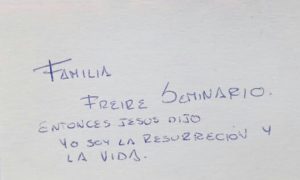 FAMILIA
FREIRE SEMINARIO.
ENTONCES JESUS DIJO
YO SOY LA RESURRECCIÓN Y
LA VIDA.